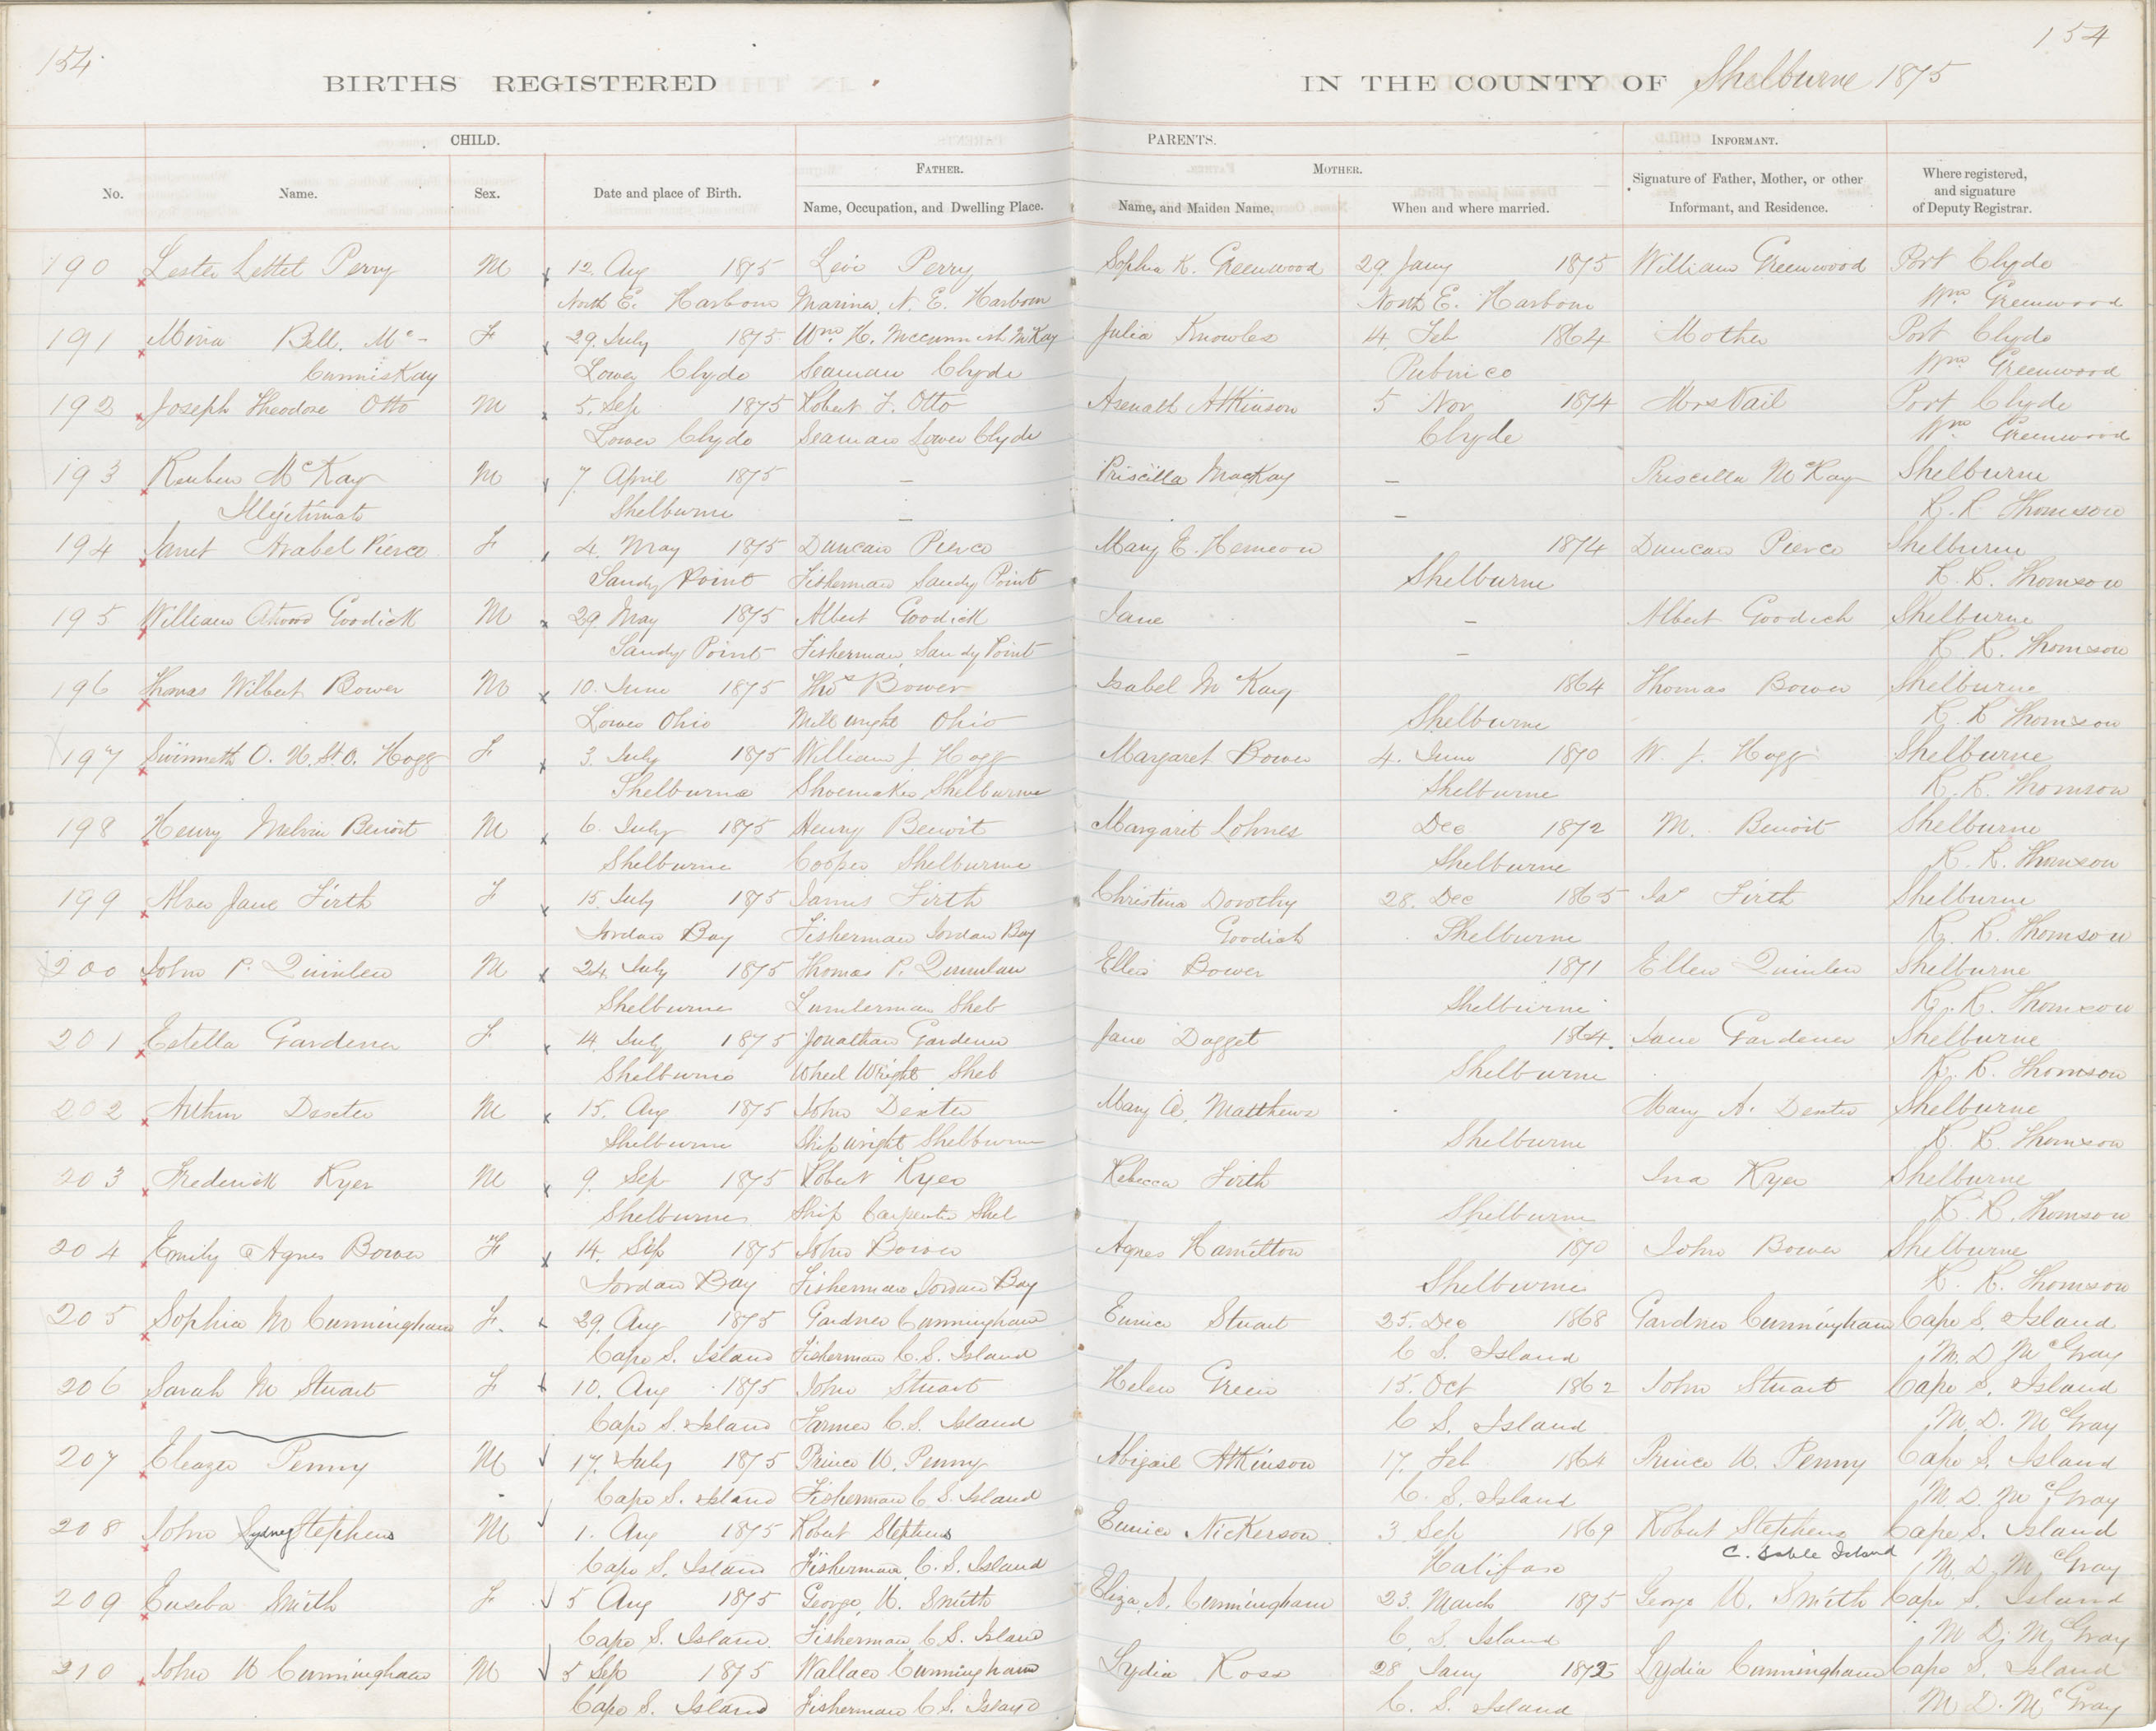 154.
154
BIRTHS REGISTERED
IN THE COUNTY OF Shelburne 1875
CHILD.
PARENTS.
INFORMANT.
FATHER.
MOTHER.
No.
Name.
Sex.
Date and place of Birth.
Name, Occupation, and Dwelling Place.
Name, and Maiden Name.
When and where married.
Signature of Father, Mother, or other
Informant, and Residence.
Where registered,
and signature
of Deputy Registrar.
190 Lester Lettel Perry M 12. Aug 1875 Levi Perry Sophia K. Greenwood 29 Jany 1875 William Greenwood Port Clyde
North E. Harbour Marina, N. E. Harbour North E. Harbour Wm Greenwood
191 Mina Bell. Mc- F 29. July 1875 Wm. H. McKay Julia Knowles 14. Feb 1864 Mother Port Clyde
CunnisKay Lower Clyde Seaman Clyde Pubnico Wm Greenwood
192 Joseph Theodore Otto M 5. Sep 1875 Robert J. Otto Asenath Atkinson 5 Nov 1874 Mrs Vail Port Clyde
Lower Clyde Seaman Lower Clyde Clyde Wm Greenwood
193 Reuben McKay M 7 April 1875 - Priscilla MacKay - Priscilla McKay Shelburne
Illegitimate Shelburne - - R. R. Thomson
194 Janet Arabel Pierce F 4. May 1875 Duncan Pierce Mary E. Hemeon 1874 Duncan Pierce Shelburne
Sandy Point Fisherman Sandy Point Shelburne R. R. Thomson
195 William Atwood Goodick M 29. May 1875 Albert Goodick Jane - Albert Goodich Shelburne
Sandy Point Fisherman, Sandy Point - R. R. Thomson
196 Thomas Wilbert Bower M 10. June 1875 Thos Bower Isabel McKay 1864 Thomas Bower Shelburne
Lower Ohio Millwright Ohio Shelburne R. R. Thomson
197 O. H. St. O. Hogg F 3. July 1875 William J. Hogg Margaret Bower 4. June 1870 W. J. Hogg Shelburne
Shelburne Shoemaker, Shelburne Shelburne R. R. Thomson
198 Henry Melvin Benoit M 6. July 1875 Henry Benoit Margaret Lohnes Dec 1872 M. Benoit Shelburne
Shelburne Cooper Shelburne Shelburne R. R. Thomson
199 Alva Jane Firth F 15. July 1875 James Firth Christina Dorothy 28. Dec 1865 Jas Firth Shelburne
Jordan Bay Fisherman Jordan Bay Goodick Shelburne R. R. Thomson
200 John P. Quinlen M 24. July 1875 Thomas P. Quinlan Ellen Bower 1871 Ellen Quinlen Shelburne
Shelburne Lumberman Sheb Shelburne R. R. Thomson
201 Estella Gardener F 14. July 1875 Jonathan Gardener Jane Dogget 1864. Jane Gardener Shelburne
Shelburne Wheel Wright Sheb Shelburne R. R. Thomson
202 Arthur Dexter M 15. Aug 1875 John Dexter Mary A. Matthews Mary A. Dexter Shelburne
Shelburne Shipwright Shelburne Shelburne R. R. Thomson
203 Frederick Ryer M 9. Sep 1875 Robert Ryer Rebecca Firth Ina Ryer Shelburne
Shelburne Ship Carpenter Shel Shelburne R. R. Thomson
204 Emily Agnes Bower F 14. Sep 1875 John Bower Agnes Hamilton 1870 John Bower Shelburne
Jordan Bay Fisherman Jordan Bay Shelburne R. R. Thomson
205 Sophia M Cunningham F. 29. Aug 1875 Gardner Cunningham Eunice Stuart 25. Dec 1868 Gardner Cunningham Cape S. Island
Cape S. Island Fisherman C. S. Island C S. Island M. D. McGray
206 Sarah M Stuart F 10. Aug 1875 John Stuart Helen Green 15. Oct 1862 John Stuart Cape S. Island
Cape S. Island Farmer C. S. Island C S. Island M. D. McGray
207 Eleazer Penny M 17. July 1875 Prince W. Penny Abigail Atkinson 17. Feb 1864 Prince W. Penny Cape S. Island
Cape S. Island Fisherman C S. Island C. S. Island M. D. McGray
208 John Sydney Stephens M 1. Aug 1875 Robert Stephens Eunice Nickerson 3 Sep 1869 Robert Stephens Cape S. Island
C. Sable Island
Cape S. Island Fisherman, C. S. Island Halifax M. D. McGray
209 Euseba Smith F 5 Aug 1875 George W. Smith Eliza A. Cunningham 23. March 1875 George W. Smith Cape S. Island
Cape S. Island. Fisherman, C. S. Island C. S. Island M. D. McGray
210 John W Cunningham M 5 Sep 1875 Wallace Cunningham Lydia Ross 28 Jany 1872 Lydia Cunningham Cape S. Island
Cape S. Island Fisherman C S. Island C. S. Island M. D. McGray